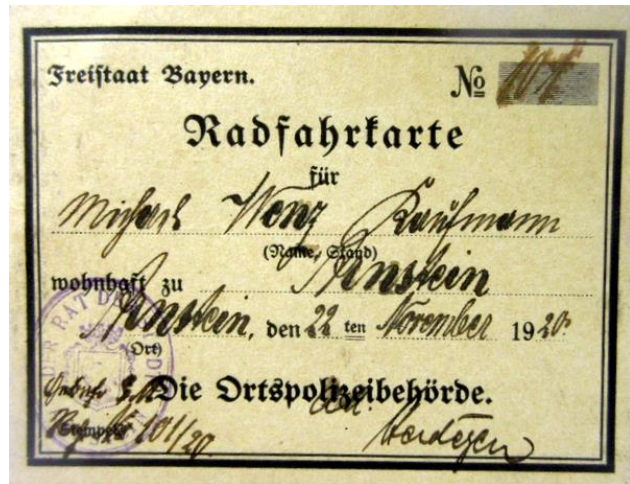 Freistaat Bayern. No
Radfahrkarte
für
Michael Wenz Kaufmann
(Name, Stand)
wohnhaft zu Arnstein
Arnstein, den 22 ten November 1920.
(Ort)
DER RAT DER
Die Ortspolizeibehörde.
101/20